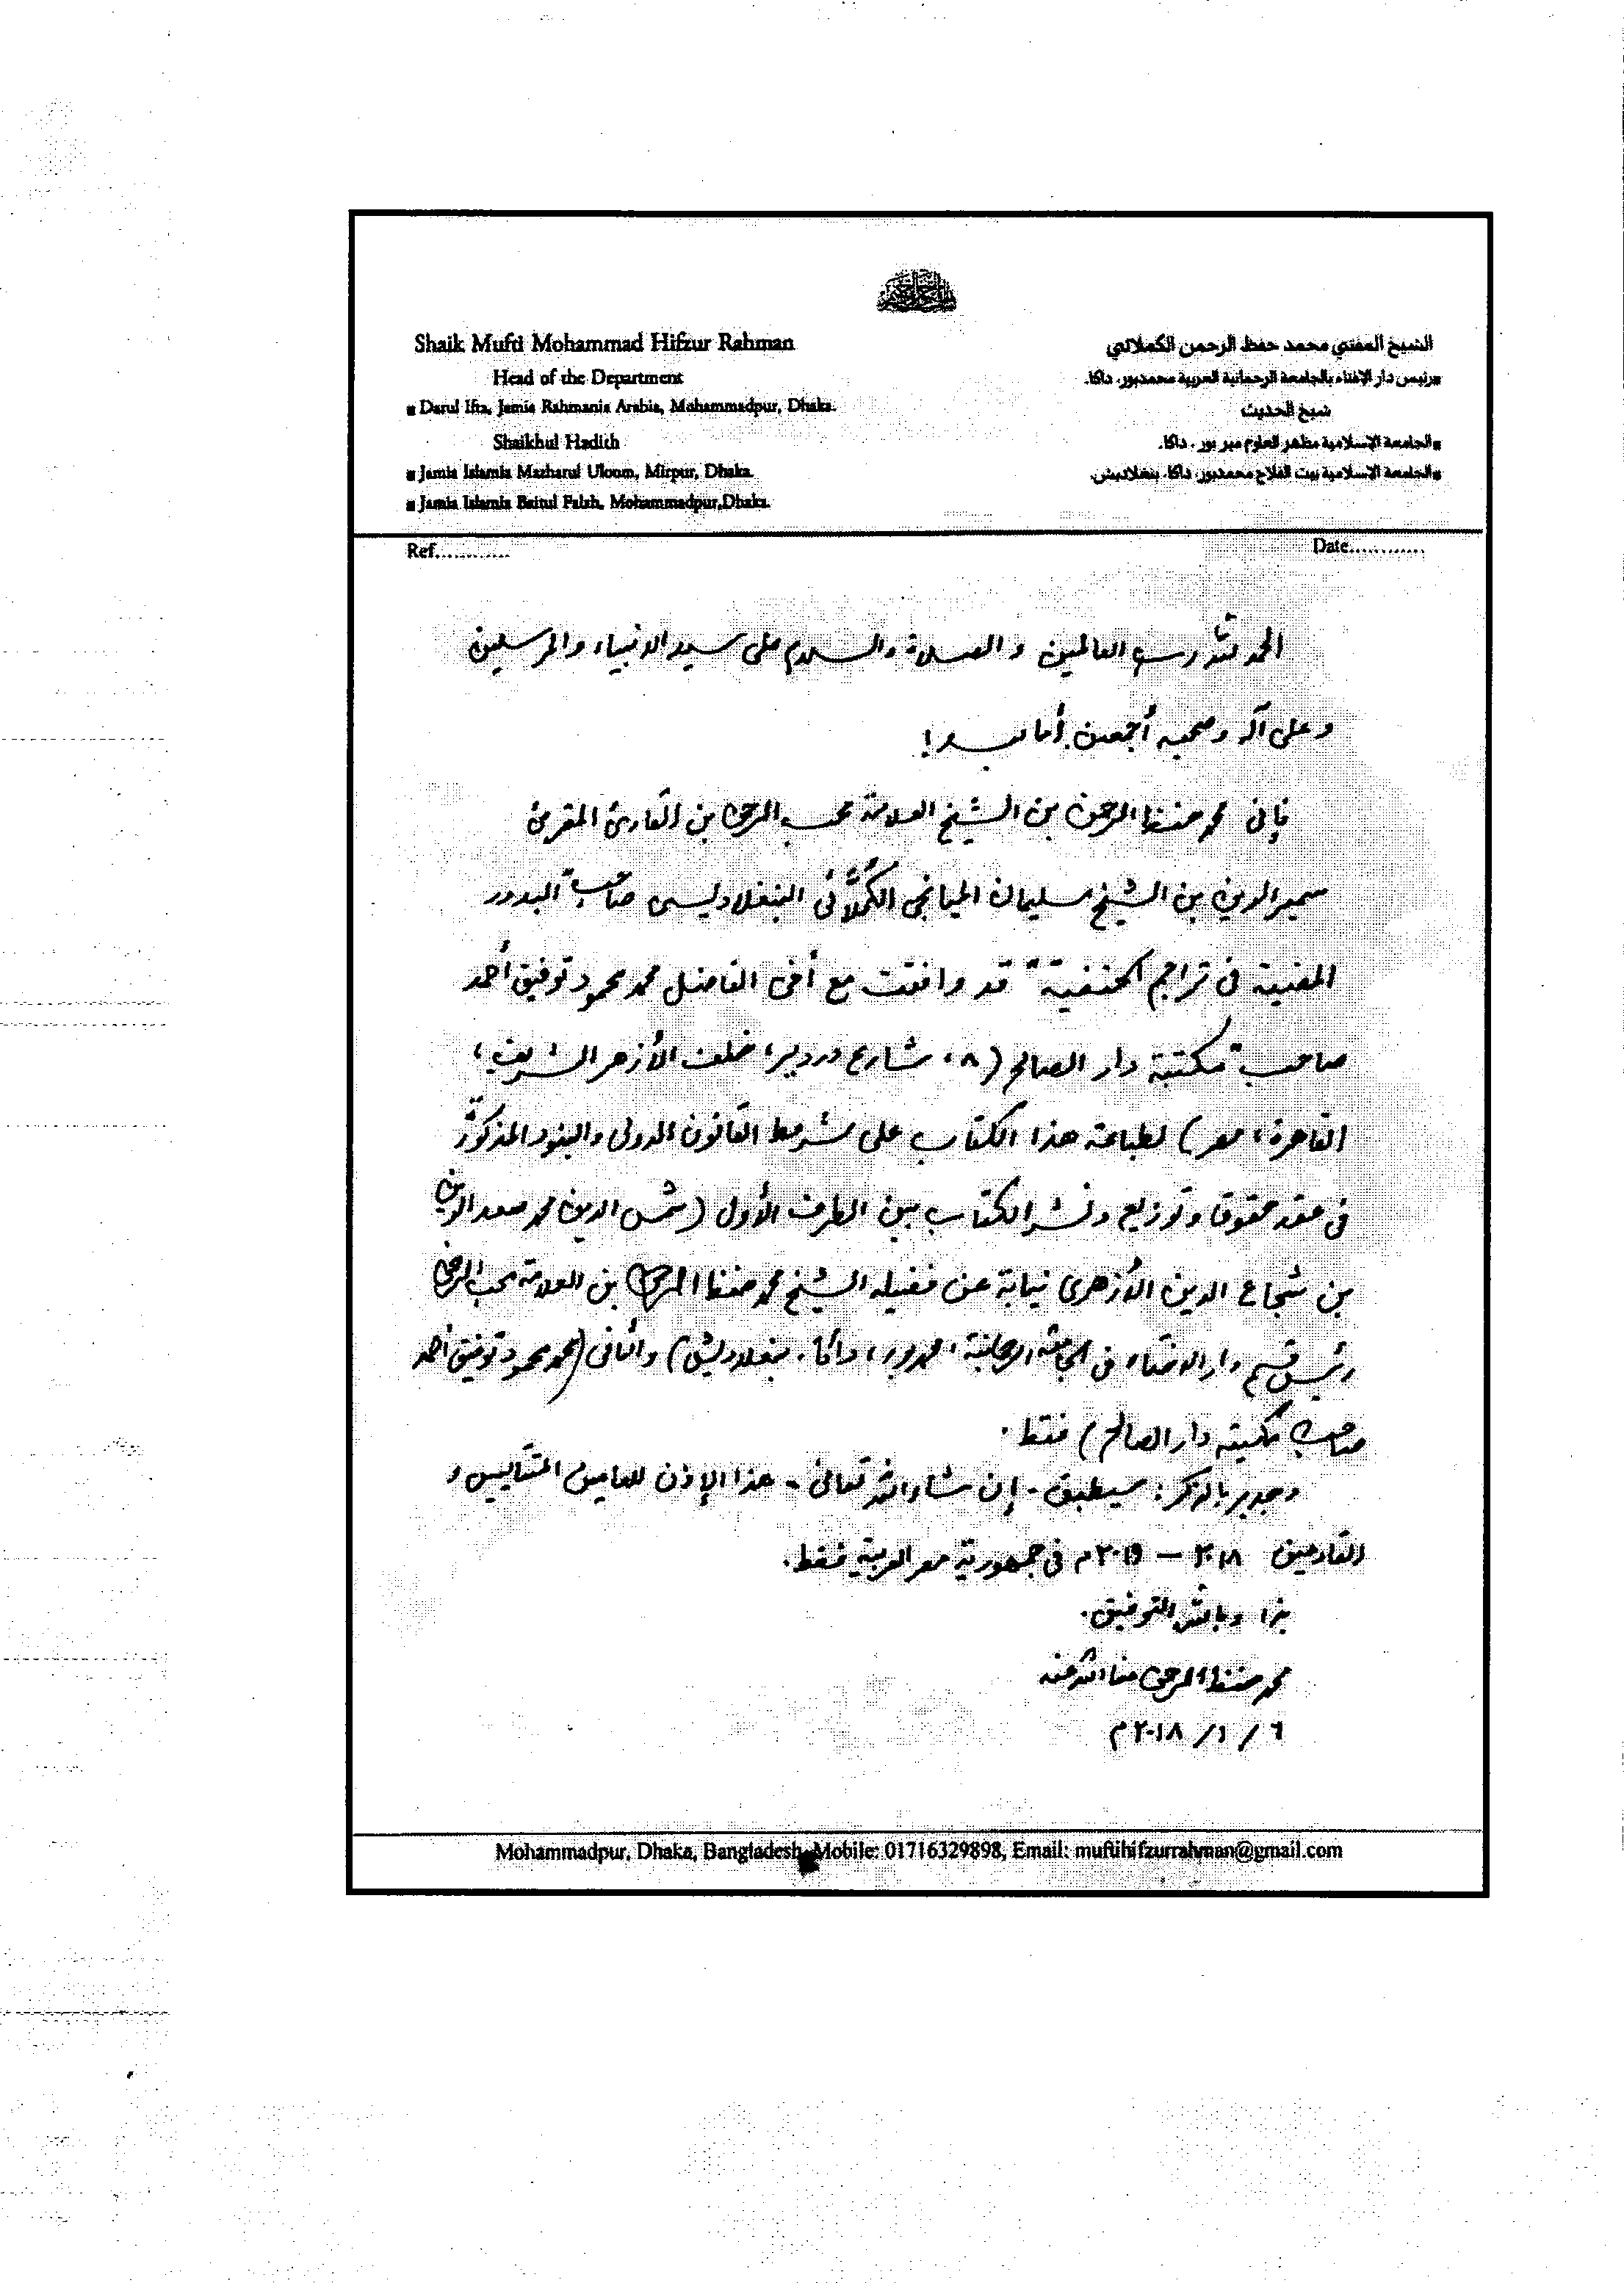 Shaik Mufti Mohammad Hifzur Rahman
Head of the Department
▪ Darul Ifta, Jamia Rahmania Arabia, Mohammadpur, Dhaka.
Shaikhul Hadith
▪ Jamia Islamia Mazharul Uloom, Mirpur, Dhaka.
▪ Jamia Islamia Baitul Falah, Mohammadpur,Dhaka.
الشيخ المفتي محمد حفظ الرحمن الكملائي
▪رئيس دار الإفتاء بالجامعة الرحمانية العربية محمدبور، داكا.
شيخ الحديث
▪الجامعة الإسلامية مظهر العلوم مير بور، داكا.
▪الجامعة الإسلامية بيت الفلاح محمدبور، داكا، بنغلاديش.
Ref............
Date............
الحمد لله رب العالمين والصلاة والسلام على سيد الانبياء والمرسلين
وعلى آله وصحبه أجمعين. أما بعد!
فإني محمد حفظ الرحمن بن الشيخ العلامة محب الرحمن بن القارئ المقرئ
سمير الدين بن الشيخ سليمان الميانجي الكُمِلَّائي البنغلاديسي صاحب "البدور
المضية في تراجم الحنفية" قد وافقت مع أخي الفاضل محمد محمود توفيق أحمد
صاحب مكتبة دار الصالح (٨، شارع دردير، خلف الأزهر الشريف،
القاهرة، مصر) لطباعة هذا الكتاب على شروط القانون الدولى والبنود المذكورة
في عقد حقوق وتوزيع ونشر الكتاب بين الطرف الأول (شمس الدين محمد سعد الدين
بن شجاع الدين الأزهرى نيابة عن فضيلة الشيخ محمد حفظ الرحمن بن العلامة محب الرحمن
رئيس قسم دار الافتاء في الجامعة الرحمانية، محمدبور، داكا، بنغلاديش) والثاني (محمد محمود توفيق أحمد
صاحب مكتبة دار الصالح) فقط.
وجدير بالذكر: سيطبق - إن شاء الله تعالى - هذا الإذن للعامين و
القادمين ٢٠١٨ – ٢٠١٩م في جمهورية مصر العربية فقط.
هذا وبالله التوفيق.
محمد حفظ الرحمن عفا الله عنه
٦/ ١/ ٢٠١٨م
Mohammadpur, Dhaka, Bangladesh, Mobile: 01716329898, Email: muftihifzurrahman@gmail.com